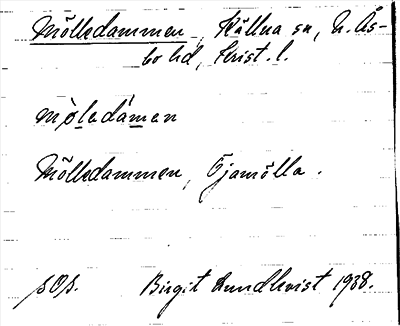 Mölledammen, Källna sn, N. Ås-
bo hd, Krist. l.
mö̀ledámen
Mölledammen, Öjamölla.
sOs. Birgit Lundkvist 1938.